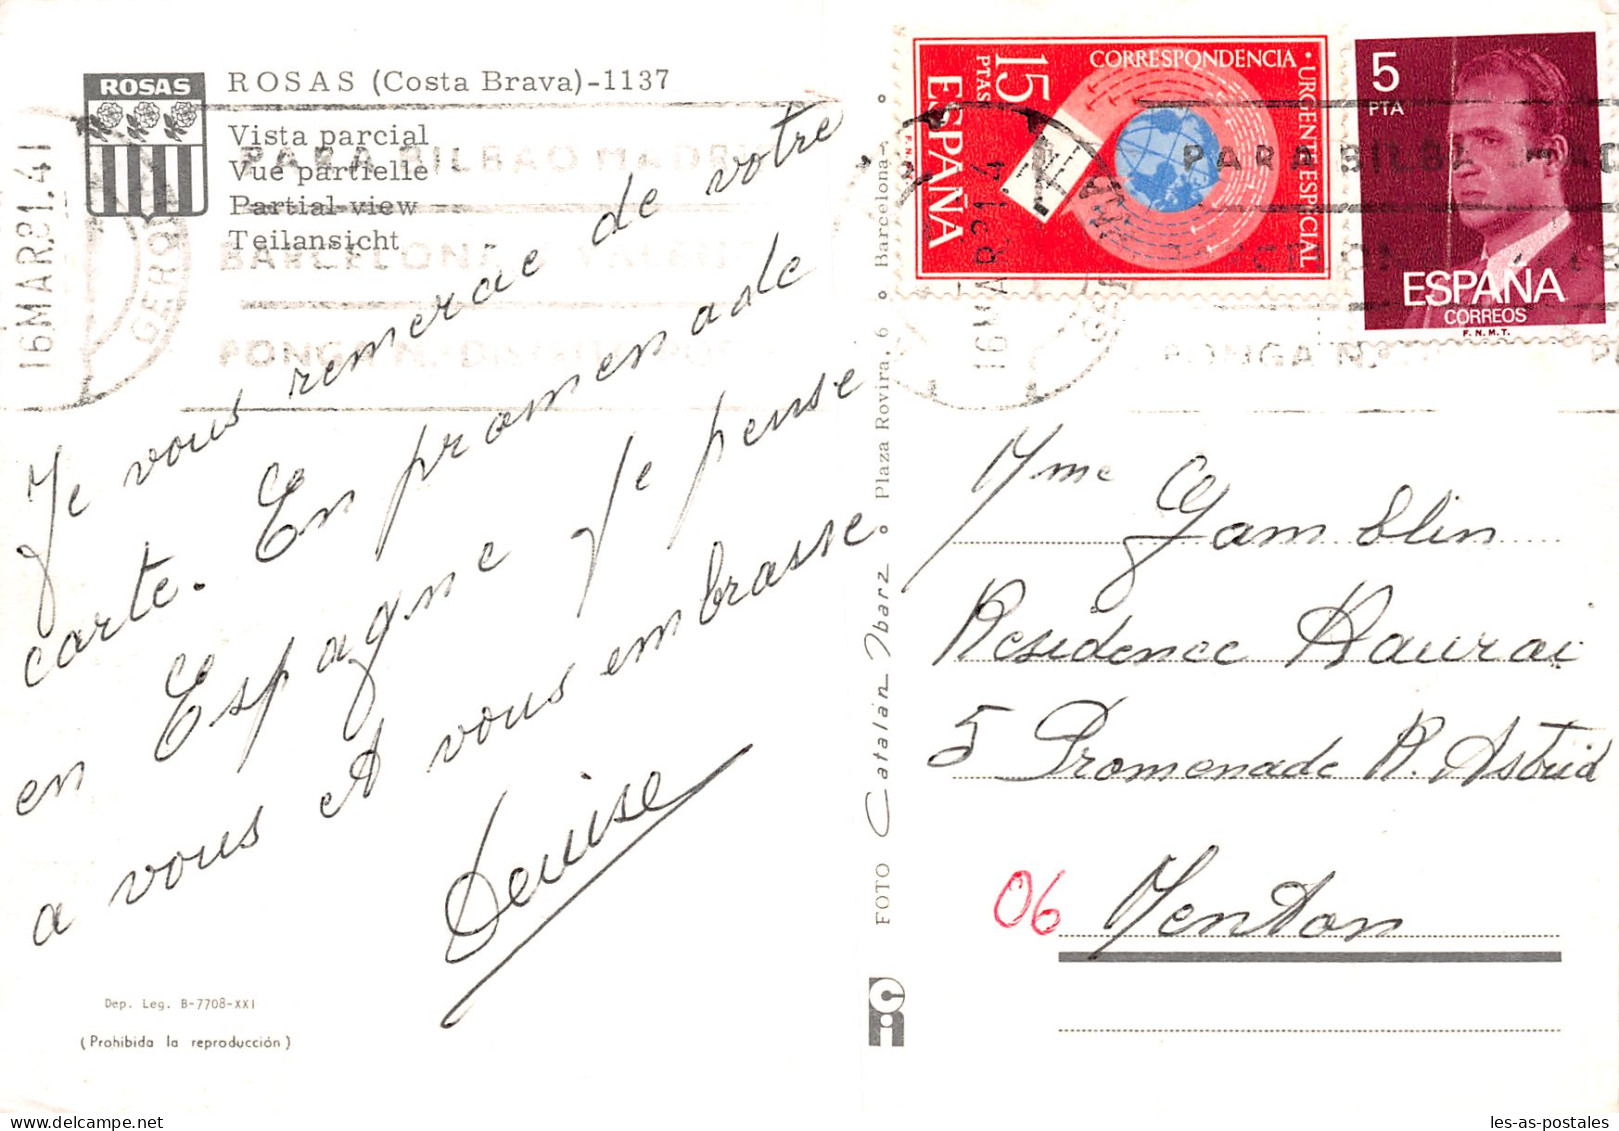 ROSAS
ROSAS (Costa Brava)-1137
Vista parcial
Vue partielle
Partial view
Teilansicht
16MAR.81.4
GERO
PARA BILBAO MADRI
BARCELONA VALEN
PONGA N. DISTRITO POS
Je vous remercie de votre
carte. En promenade
en Espagne je pense
a vous et vous embrasse
Denise
Dep. Leg. B-7708-XXI
(Prohibida la reproducción)
FOTO Catalán Ibarz o Plaza Rovira, 6 o Barcelona o
CORRESPONDENCIA · URGENTE ESPECIAL
15 PTAS
ESPAÑA
F.N.M.T.
5 PTA
ESPAÑA
CORREOS
F.N.M.T.
16MAR81.4
PARA BILBA MAD
PONGA N
Mme Gamblin
Residence Haurai
5 Promenade R. Astrid
06 Menton
les-as-postales